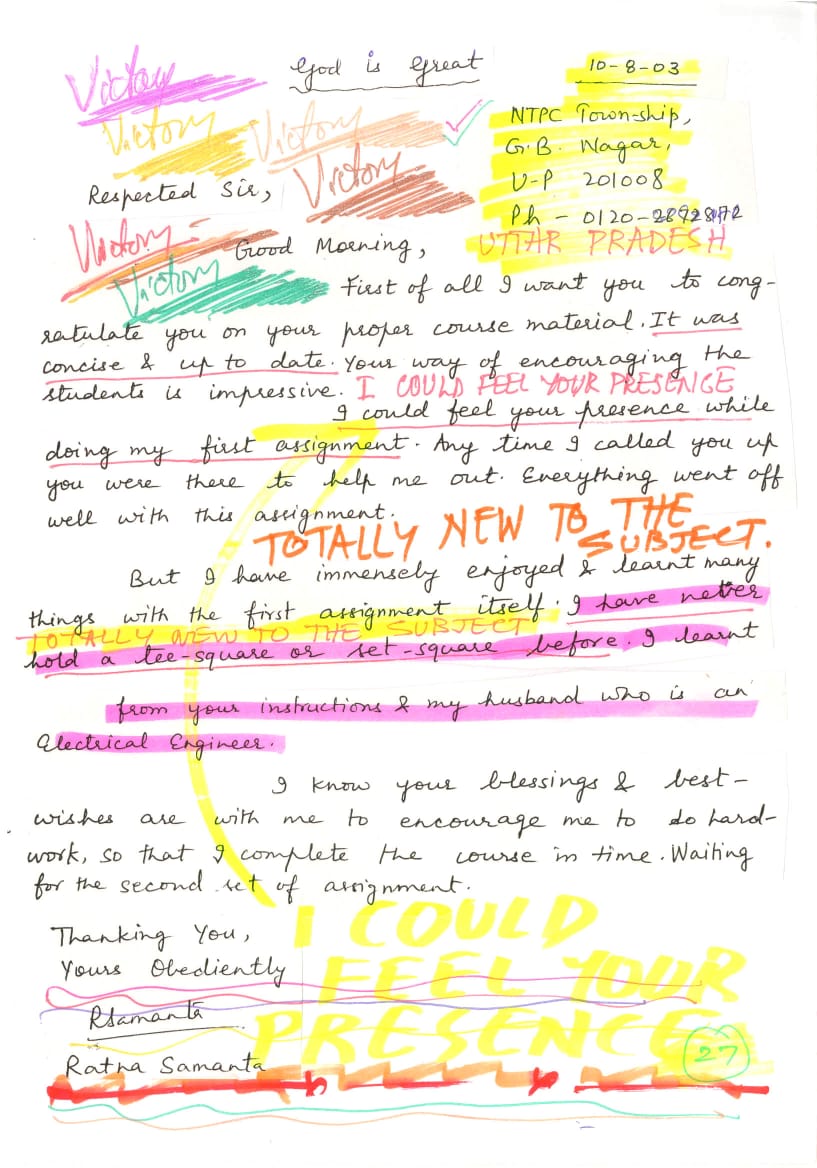 Victory
God is Great
10-8-03
Victory
Victory
NTPC Township,
G.B. Nagar,
U-P 201008
Ph - 0120-2892872
Victory
Respected Sir,
Victory
Good Morning,
UTTAR PRADESH
Victory
First of all I want you to cong-
ratulate you on your proper course material. It was
concise & up to date. Your way of encouraging the
students is impressive. I COULD FEEL YOUR PRESENCE
I could feel your presence while
doing my first assignment. Any time I called you up
you were there to help me out. Everything went off
well with this assignment.
TOTALLY NEW TO THE
SUBJECT.
But I have immensely enjoyed & learnt many
things with the first assignment itself. I have never
TOTALLY NEW TO THE SUBJECT
hold a tee-square or set-square before. I learnt
from your instructions & my husband who is an
Electrical Engineer.
I know your blessings & best-
wishes are with me to encourage me to do hard-
work, so that I complete the course in time. Waiting
for the second set of assignment.
Thanking You,
Yours Obediently
RSamanta
Ratna Samanta
I COULD
FEEL YOUR
PRESENCE
27